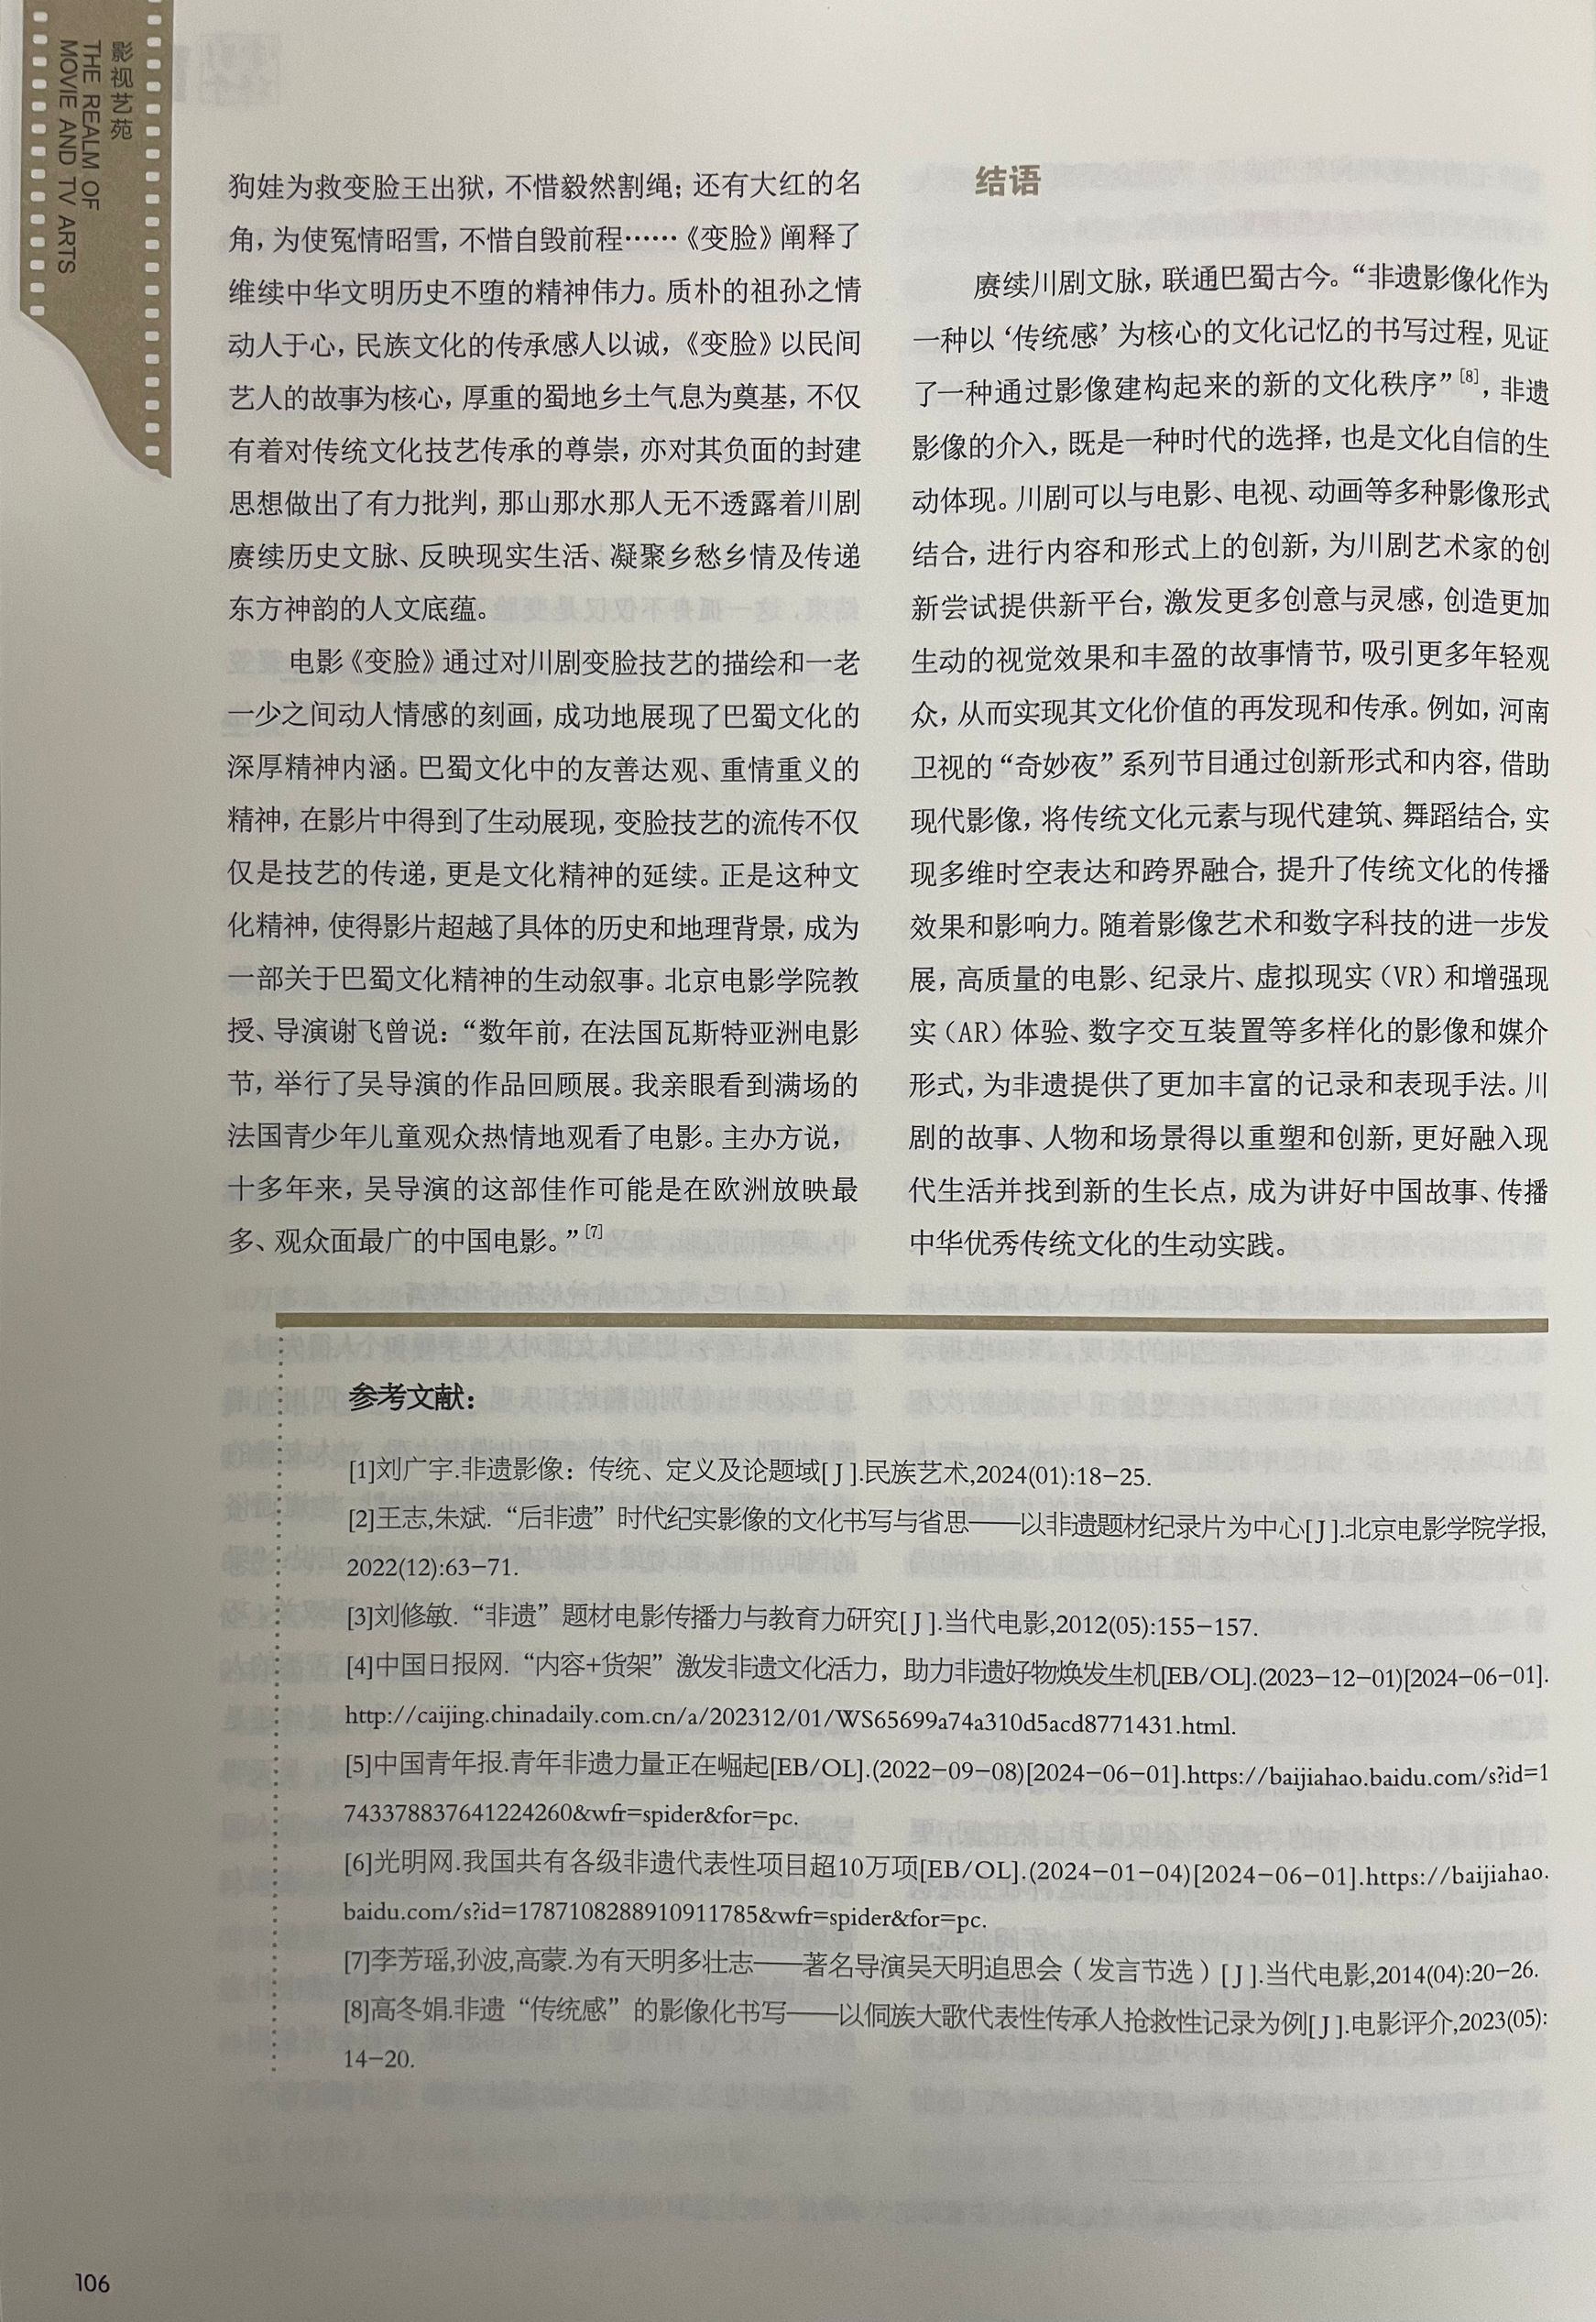 影视艺苑
THE REALM OF
MOVIE AND TV ARTS
狗娃为救变脸王出狱，不惜毅然割绳；还有大红的名
角，为使冤情昭雪，不惜自毁前程……《变脸》阐释了
维续中华文明历史不堕的精神伟力。质朴的祖孙之情
动人于心，民族文化的传承感人以诚，《变脸》以民间
艺人的故事为核心，厚重的蜀地乡土气息为奠基，不仅
有着对传统文化技艺传承的尊崇，亦对其负面的封建
思想做出了有力批判，那山那水那人无不透露着川剧
赓续历史文脉、反映现实生活、凝聚乡愁乡情及传递
东方神韵的人文底蕴。
电影《变脸》通过对川剧变脸技艺的描绘和一老
一少之间动人情感的刻画，成功地展现了巴蜀文化的
深厚精神内涵。巴蜀文化中的友善达观、重情重义的
精神，在影片中得到了生动展现，变脸技艺的流传不仅
仅是技艺的传递，更是文化精神的延续。正是这种文
化精神，使得影片超越了具体的历史和地理背景，成为
一部关于巴蜀文化精神的生动叙事。北京电影学院教
授、导演谢飞曾说：“数年前，在法国瓦斯特亚洲电影
节，举行了吴导演的作品回顾展。我亲眼看到满场的
法国青少年儿童观众热情地观看了电影。主办方说，
十多年来，吴导演的这部佳作可能是在欧洲放映最
多、观众面最广的中国电影。”[7]
结语
赓续川剧文脉，联通巴蜀古今。“非遗影像化作为
一种以‘传统感’为核心的文化记忆的书写过程，见证
了一种通过影像建构起来的新的文化秩序”[8]，非遗
影像的介入，既是一种时代的选择，也是文化自信的生
动体现。川剧可以与电影、电视、动画等多种影像形式
结合，进行内容和形式上的创新，为川剧艺术家的创
新尝试提供新平台，激发更多创意与灵感，创造更加
生动的视觉效果和丰盈的故事情节，吸引更多年轻观
众，从而实现其文化价值的再发现和传承。例如，河南
卫视的“奇妙夜”系列节目通过创新形式和内容，借助
现代影像，将传统文化元素与现代建筑、舞蹈结合，实
现多维时空表达和跨界融合，提升了传统文化的传播
效果和影响力。随着影像艺术和数字科技的进一步发
展，高质量的电影、纪录片、虚拟现实（VR）和增强现
实（AR）体验、数字交互装置等多样化的影像和媒介
形式，为非遗提供了更加丰富的记录和表现手法。川
剧的故事、人物和场景得以重塑和创新，更好融入现
代生活并找到新的生长点，成为讲好中国故事、传播
中华优秀传统文化的生动实践。
参考文献：
[1]刘广宇.非遗影像：传统、定义及论题域[J].民族艺术,2024(01):18-25.
[2]王志,朱斌.“后非遗”时代纪实影像的文化书写与省思——以非遗题材纪录片为中心[J].北京电影学院学报,
2022(12):63-71.
[3]刘修敏.“非遗”题材电影传播力与教育力研究[J].当代电影,2012(05):155-157.
[4]中国日报网.“内容+货架”激发非遗文化活力，助力非遗好物焕发生机[EB/OL].(2023-12-01)[2024-06-01].
http://caijing.chinadaily.com.cn/a/202312/01/WS65699a74a310d5acd8771431.html.
[5]中国青年报.青年非遗力量正在崛起[EB/OL].(2022-09-08)[2024-06-01].https://baijiahao.baidu.com/s?id=1
743378837641224260&wfr=spider&for=pc.
[6]光明网.我国共有各级非遗代表性项目超10万项[EB/OL].(2024-01-04)[2024-06-01].https://baijiahao.
baidu.com/s?id=1787108288910911785&wfr=spider&for=pc.
[7]李芳瑶,孙波,高蒙.为有天明多壮志——著名导演吴天明追思会（发言节选）[J].当代电影,2014(04):20-26.
[8]高冬娟.非遗“传统感”的影像化书写——以侗族大歌代表性传承人抢救性记录为例[J].电影评介,2023(05):
14-20.
106